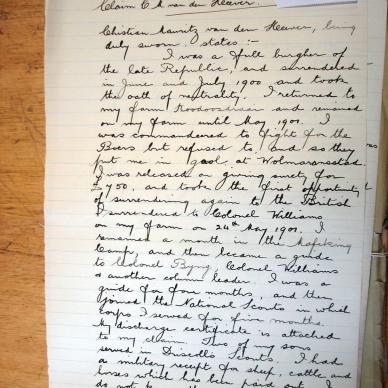 Claim C M van den Heever.
Christian Mauritz van den Heever, being
duly sworn, states:-
I was a full burgher of
the late Republic, and surrendered
in June and July 1900 and took
the oath of neutrality. I returned to
my farm and remained
on my farm until May 1901. I
was commandeered to fight for the
Boers but refused to, and so they
put me in gaol, at Wolmaransstad.
I was released on giving surety for
£750, and took the first opportunity
of surrendering again to the British
I surrendered to Colonel Williams
on my farm on 24th May 1901. I
remained a month in the Mafeking
Camp, and then became a guide
to Colonel Byng, Colonel Williams
& another column leader. I was a
guide for four months, and then
joined the National Scouts in which
Corps I served for five months.
My discharge certificate is attached
to my claim. Two of my sons
served in Driscoll's Scouts. I had
a military receipt for sheep, cattle and
horses which has been paid out. I
do not